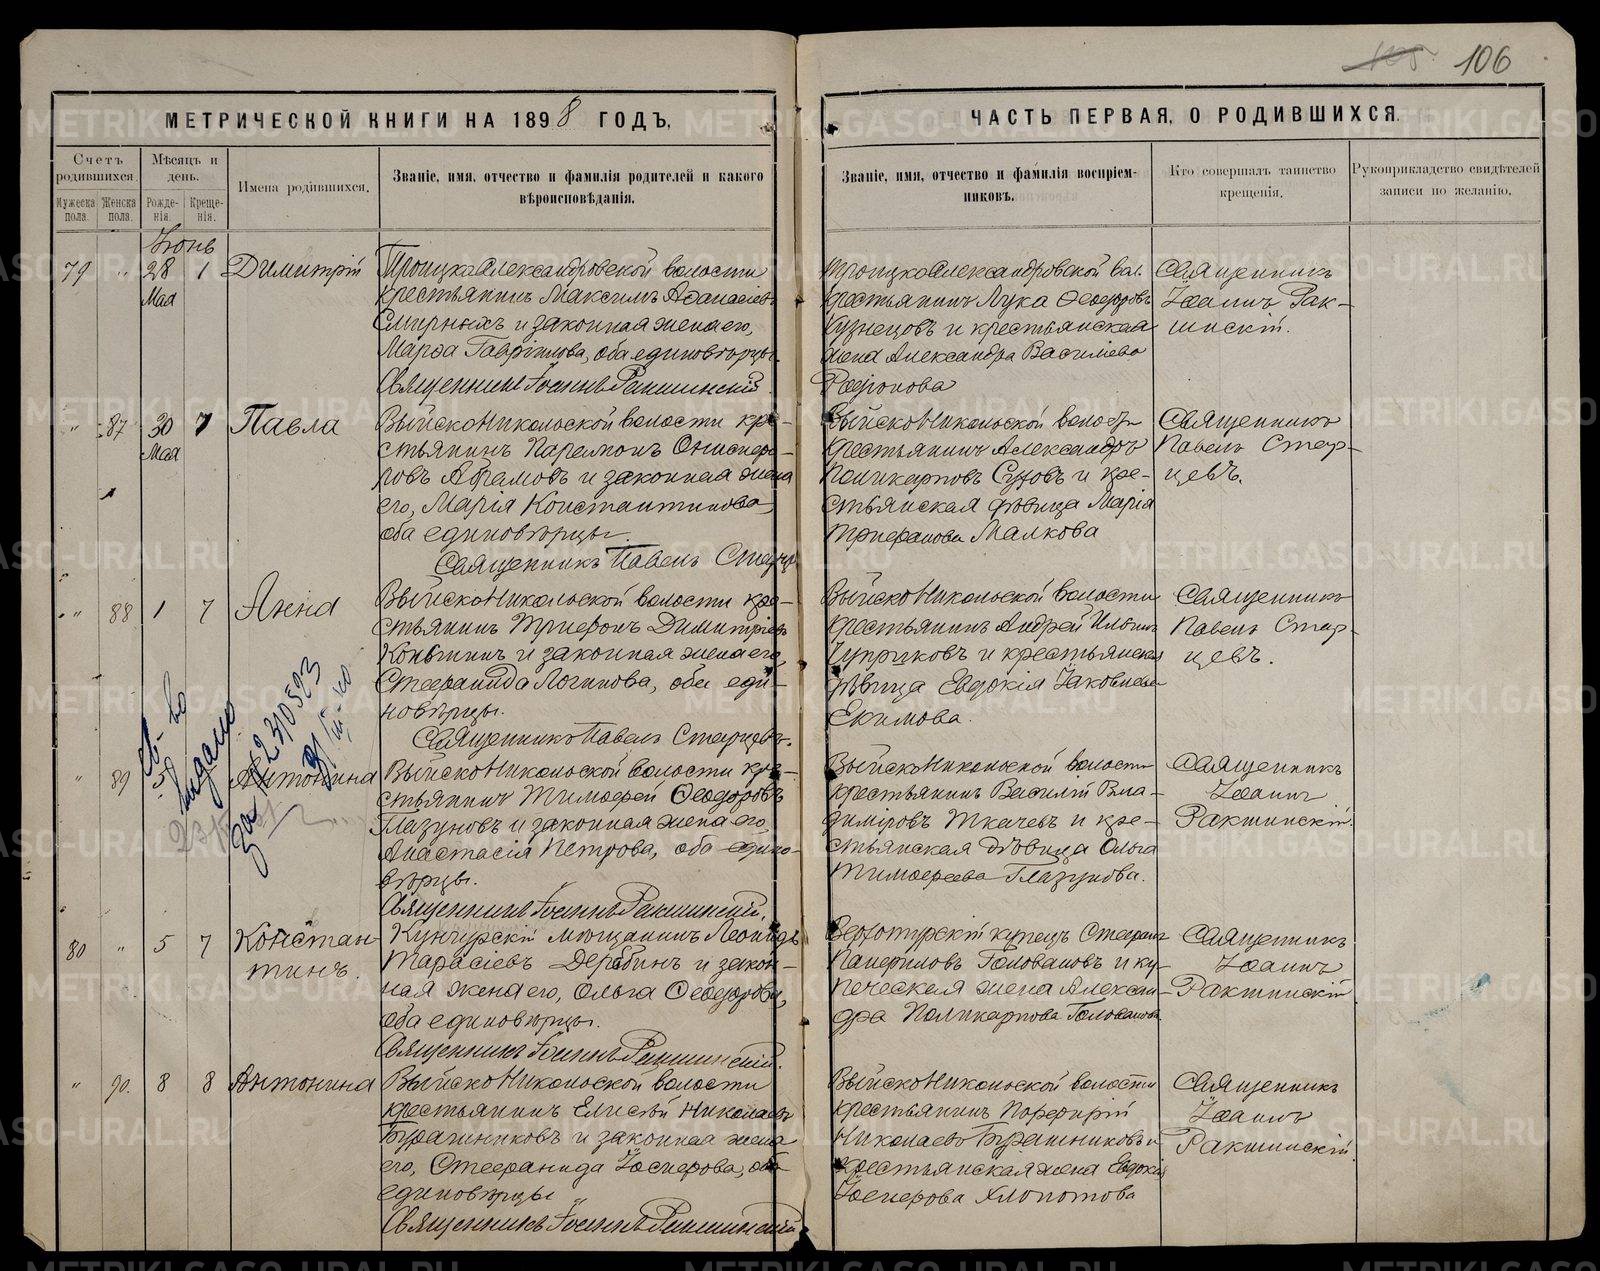 105. 106
МЕТРИЧЕСКОЙ КНИГИ НА 1898 ГОДЪ,
ЧАСТЬ ПЕРВАЯ, О РОДИВШИХСЯ.
Счетъ родившихся.
Мужеска пола.
Женска пола.
Мѣсяцъ и день.
Рожденія.
Крещенія.
Имена родившихся.
Званіе, имя, отчество и фамилія родителей и какого
вѣроисповѣданія.
Званіе, имя, отчество и фамилія воспріем-
никовъ.
Кто совершалъ таинство
крещенія.
Рукоприкладство свидѣтелей
записи по желанію.
Іюнь
79 " 28 Мая 1 Димитрій
ТроицкоАлександровской волости
крестьянинъ Максимъ Аѳанасіевъ
Смирныхъ и законная жена его,
Марѳа Гавріилова, оба единовѣрцы
Священникъ Іоаннъ Ракшинскій.
ТроицкоАлександровской вол.
крестьянинъ Лука Ѳеодоровъ
Кузнецовъ и крестьянская
жена Александра Василіева
Священникъ
Іоаннъ Рак-
шинскій.
" 87 30 Мая 7 Павла
ВыйскоНикольской волости кре-
стьянинъ Парамонъ Онисифо-
ровъ Абрамовъ и законная жена
его, Марія Константинова,
оба единовѣрцы.
Священникъ Павелъ Старц
ВыйскоНикольской волости
крестьянинъ Александръ
Поликарповъ Суховъ и кре-
стьянская дѣвица Марія
Трифонова Малкова
Священникъ
Павелъ Стар-
цевъ.
" 88 1 7 Анна
ВыйскоНикольской волости кре-
стьянинъ Трифонъ Димитріевъ
Коньшинъ и законная жена его,
Стефанида Логинова, оба еди-
новѣрцы.
Священникъ Павелъ Старцевъ.
ВыйскоНикольской волости
крестьянинъ Андрей Ильинъ
Чуприковъ и крестьянская
дѣвица Евдокія Іаковлева
Екимова.
Священникъ
Павелъ Стар-
цевъ.
св-во
выдано
за № 2310523
" 89 5 Антонина
ВыйскоНикольской волости кре-
стьянинъ Тимоѳей Ѳеодоровъ
Глазуновъ и законная жена его,
Анастасія Петрова, оба едино-
вѣрцы.
Священникъ Іоаннъ Ракшинскій.
ВыйскоНикольской волости
крестьянинъ Василій Вла-
диміровъ Ткачевъ и кре-
стьянская дѣвица Ольга
Тимоѳеева Глазунова.
Священникъ
Іоаннъ
Ракшинскій.
80 " 5 7 Констан-
тинъ.
Кунгурскій мѣщанинъ Леонидъ
Тарасіевъ Дерябинъ и закон-
ная жена его, Ольга Ѳеодорова,
оба единовѣрцы.
Священникъ Іоаннъ Ракшинскій.
Верхотурскій купецъ Стефанъ
Панфиловъ Головановъ и ку-
печеская жена Алексан-
дра Поликарпова Голованова
Священникъ
Іоаннъ
Ракшинскій
" 90. 8 8 Антонина
ВыйскоНикольской волости
крестьянинъ Елисѣй Николаевъ
Бурашниковъ и законная жена
его, Стефанида Іосифова, оба
единовѣрцы
Священникъ Іоаннъ Ракшинскій
ВыйскоНикольской волости
крестьянинъ Порфирій
Николаевъ Бурашниковъ и
крестьянская жена Евдокія
Іосифова Хлопотова
Священникъ
Іоаннъ
Ракшинскій.
METRIKI.GASO-URAL.RU